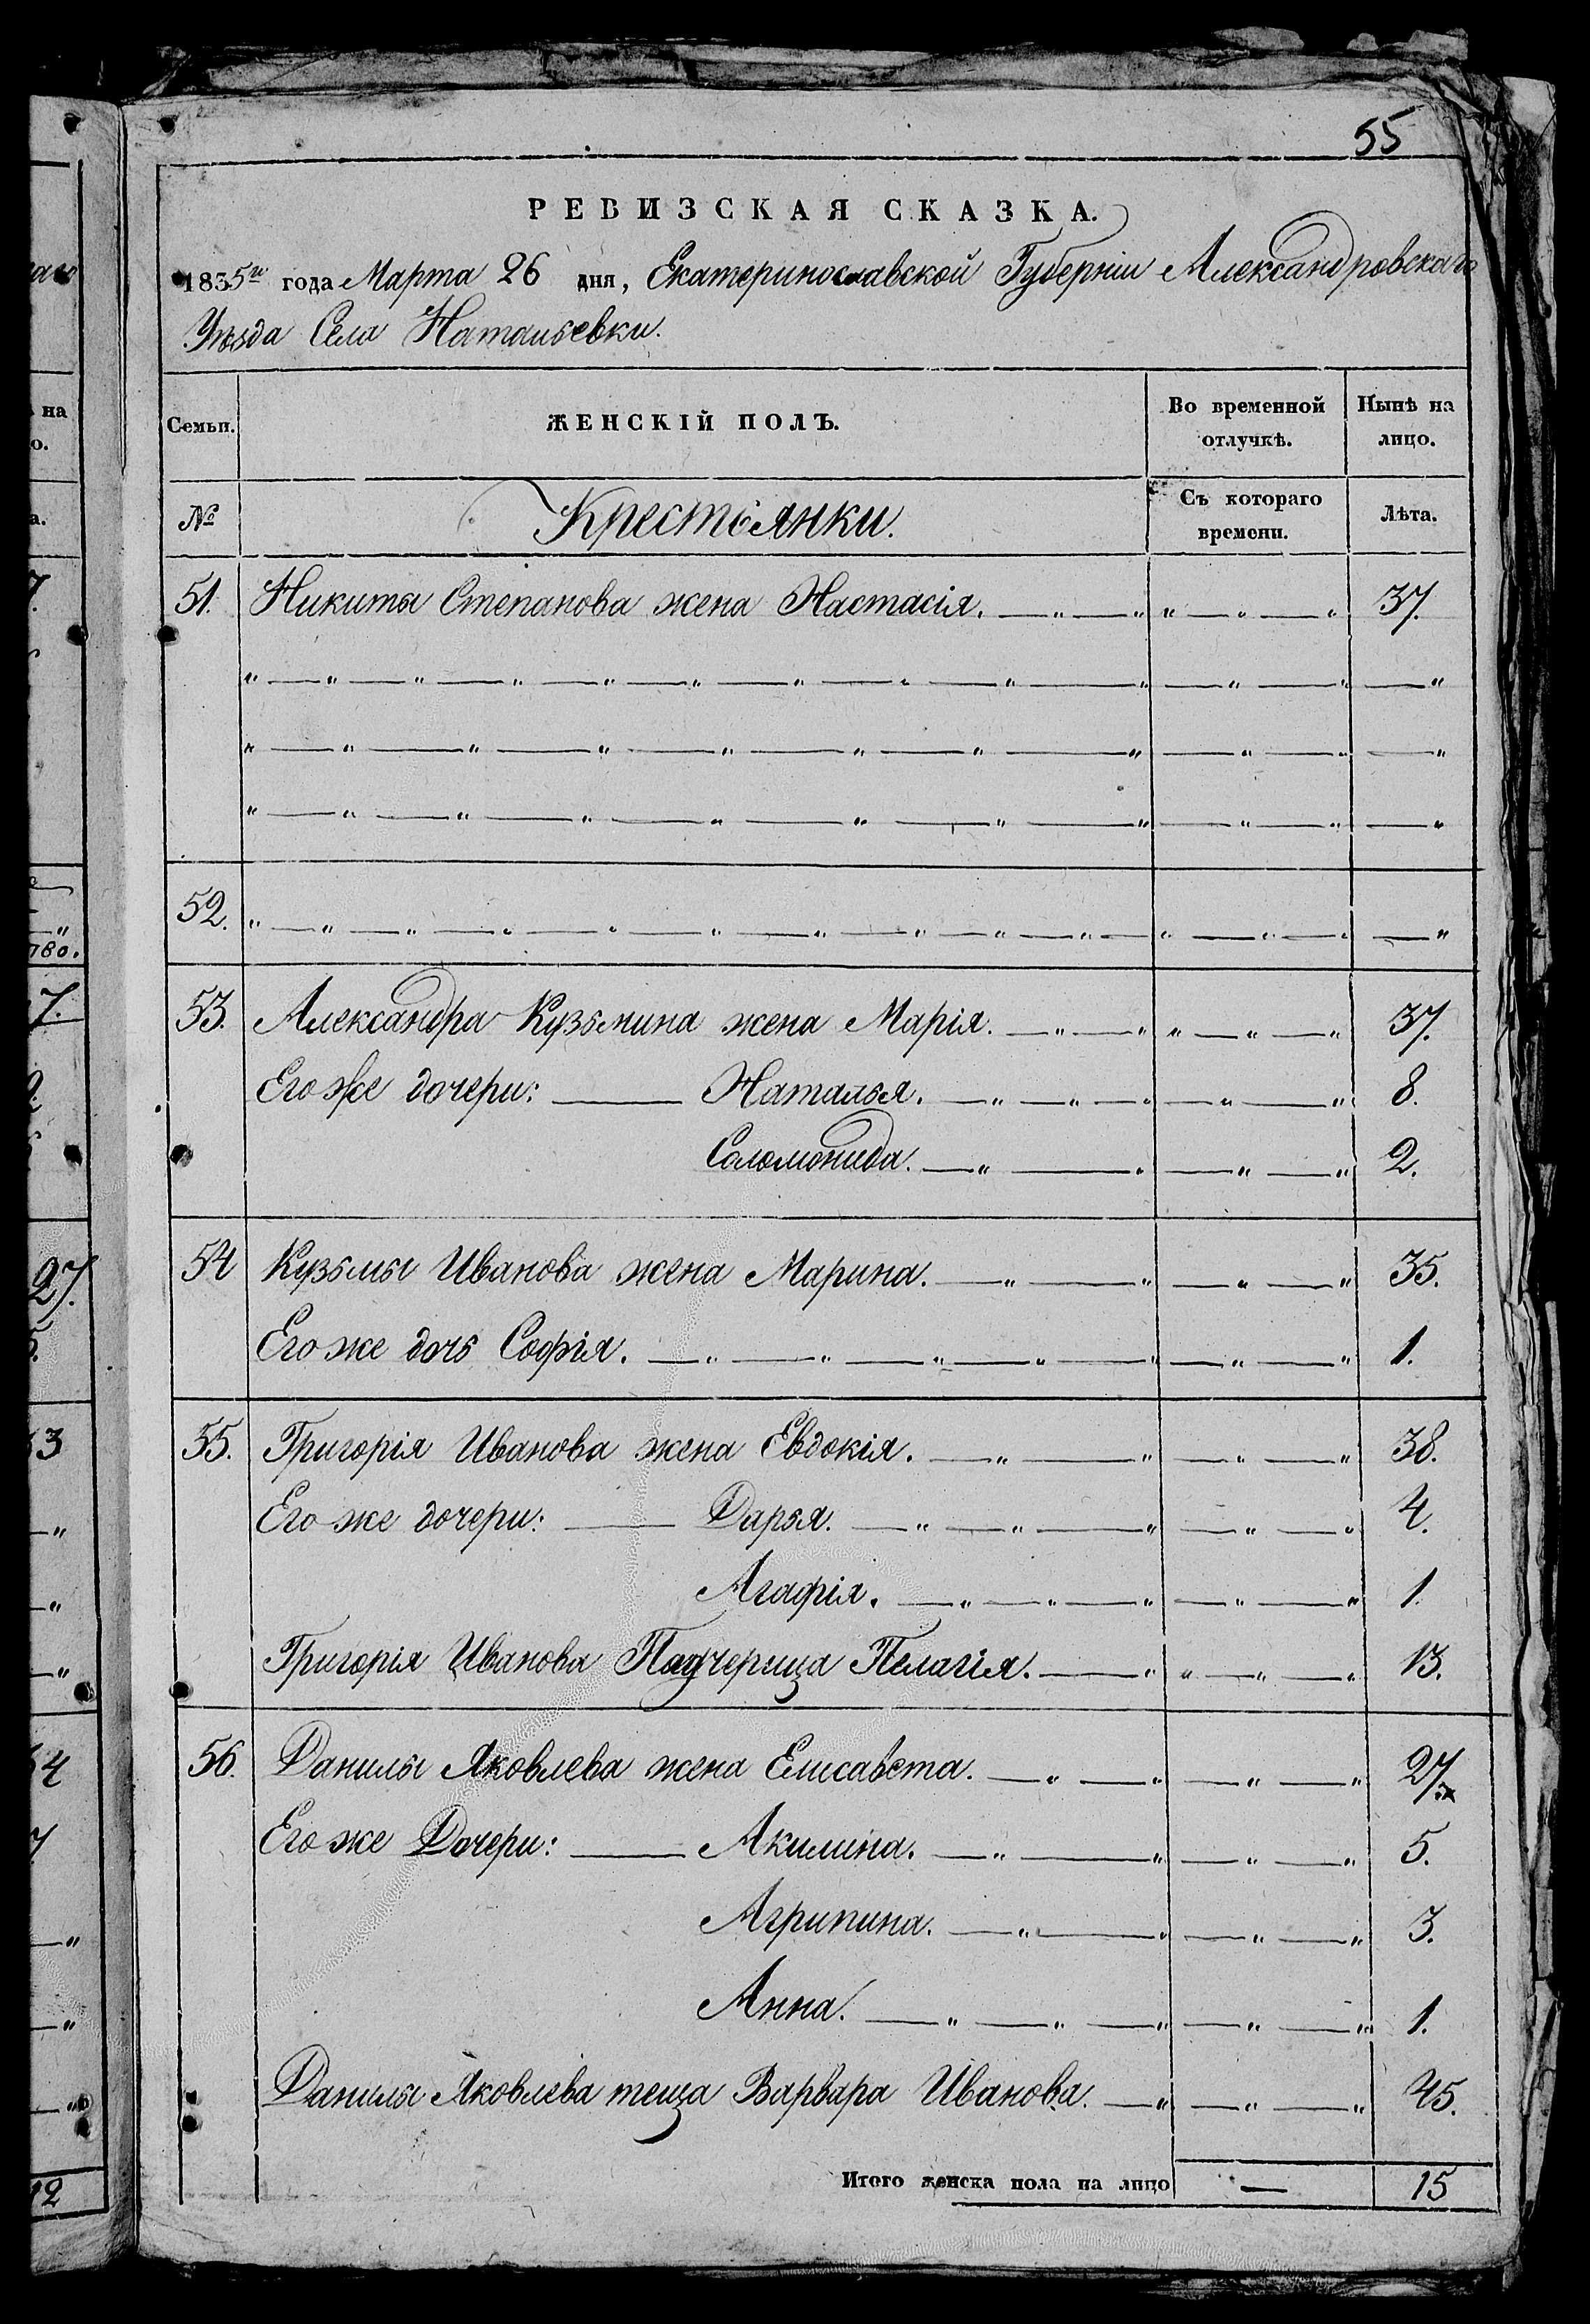 55
РЕВИЗСКАЯ СКАЗКА.
1835го года Марта 26 дня, Екатеринославской Губерніи Александровскаго
Уѣзда Села Натальевки.
Семьи. ЖЕНСКІЙ ПОЛЪ. Во временной отлучкѣ. Нынѣ на лицо.
№ Крестьянки. Съ котораго времени. Лѣта.
51. Никиты Степанова жена Настасія. 37.
52.
53. Александра Кузьмина жена Марія. 37.
Его же дочери: Наталья. 8.
Соломонида. 2.
54 Кузьмы Иванова жена Марина. 35.
Его же дочь Софія. 1.
55. Григорія Иванова жена Евдокія. 38.
Его же дочери: Дарья. 4.
Агафія. 1.
Григорія Иванова Падчерица Пелагія. 13.
56. Данилы Яковлева жена Елисавета. 27.
Его же Дочери: Акилина. 5.
Агрипина. 3.
Анна. 1.
Данилы Яковлева теща Варвара Иванова. 45.
Итого женска пола на лицо — 15